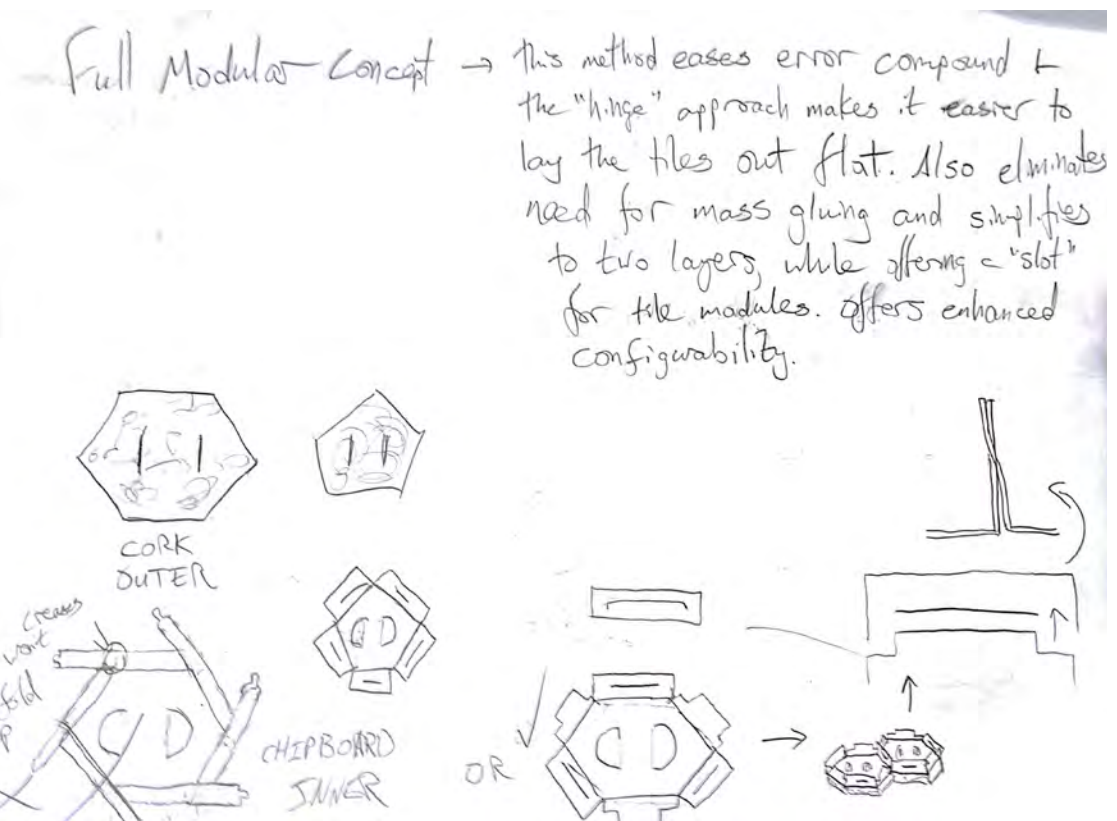 Full Modular Concept → this method eases error compound +
the "hinge" approach makes it easier to
lay the tiles out flat. Also eliminates
need for mass gluing and simplifies
to two layers, while offering a "slot"
for tile modules. Offers enhanced
configurability.
CORK
OUTER
creases
won't
fold
CHIPBOARD
INNER
OR